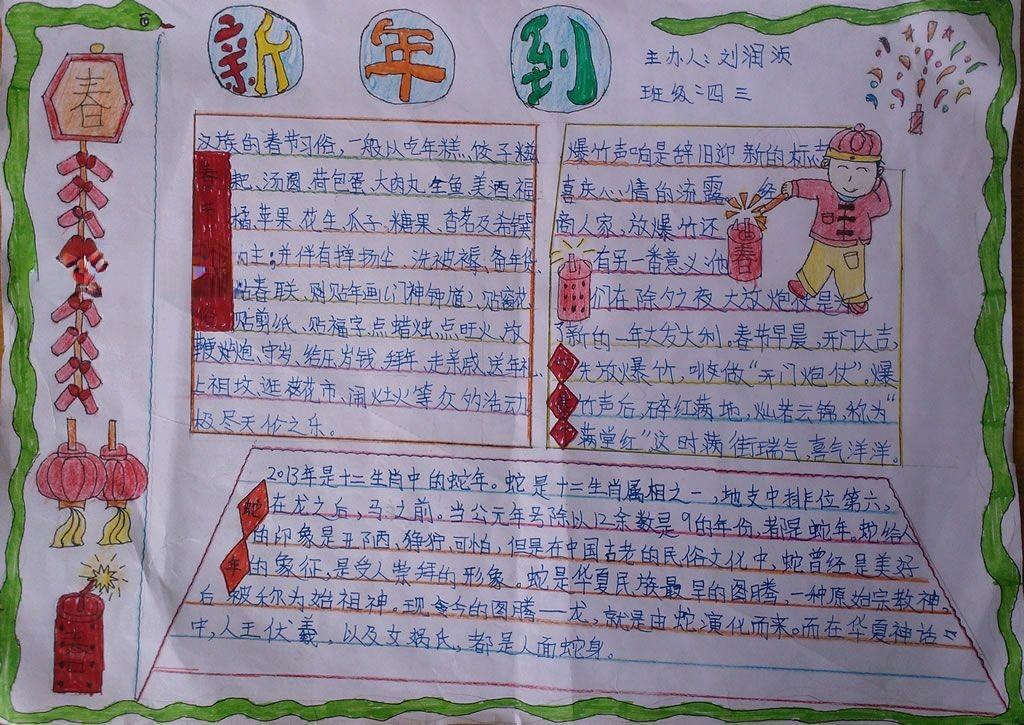 新年到
主办人:刘润浈
班级:四三
春
汉族的春节习俗,一般以吃年糕、饺子、糍
粑、汤圆、荷包蛋、大肉丸、全鱼、美酒、福
橘、苹果、花生、瓜子、糖果、香茗及希馔
为主;并伴有掸扬尘、洗被褥、备年货、
贴春联、购贴年画(门神钟馗)、贴窗花
贴剪纸、贴福字、点蜡烛、点旺火、放
鞭炮、守岁、给压岁钱、拜年、走亲戚、送年礼、
上祖坟、逛花市、闹社火等众多的活动
极尽天伦之乐。
爆竹声响是辞旧迎新的标志
喜庆心情的流露。经
商人家,放爆竹还
有另一番意义:他
们在除夕之夜大放炮仗是为
了新的一年大发大利。春节早晨,开门大吉,
先放爆竹,叫做“开门炮仗”。爆
竹声后,碎红满地,灿若云锦,称为“
满堂红”。这时满街瑞气,喜气洋洋。
春
春
蛇
年
2013年是十二生肖中的蛇年。蛇是十二生肖属相之一,地支中排位第六,
在龙之后,马之前。当公元年号除以12余数是9的年份,都是蛇年。蛇给人
的印象是丑陋、狰狞、可怕,但是在中国古老的民俗文化中,蛇曾经是美好
的象征,是受人崇拜的形象。蛇是华夏民族最早的图腾,一种原始宗教神,
后被称为始祖神。现今的图腾——龙,就是由蛇演化而来。而在华夏神话
中,人王伏羲,以及女娲氏,都是人面蛇身。